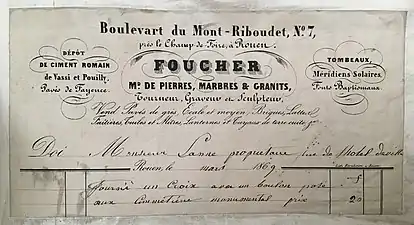 Boulevart du Mont-Riboudet, No. 7,
près le Champ de Foire, à Rouen.
DÉPÔT
DE CIMENT ROMAIN
de Vassi et Pouilly,
Pavés de Fayence.
FOUCHER
Md. DE PIERRES, MARBRES & GRANITS,
Tourneur, Graveur et Sculpteur,
TOMBEAUX,
Méridiens Solaires,
Fonts Baptismaux.
Vend Pavés de grès, Ecale et moyen, Briques, Lattes,
Faitières, Tuiles et Mitres, Lanternes et Tuyaux de terre cuite
Doi Monsieur Lanne propriétaire rue de
Rouen, le mars 1869
fourni un Croix avec un posé 5
aux Cimmetière monumental prix 20